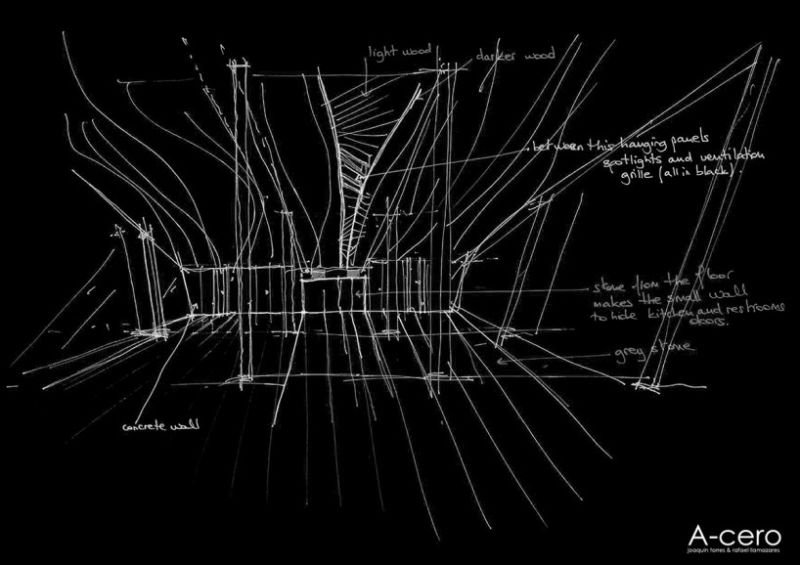 light wood
darker wood
between this hanging panels
spotlights and ventilation
grille (all in black).
stone from the floor
makes the small wall
to hide kitchen and restrooms
doors.
grey stone
concrete wall
A-cero
joaquín torres & rafael llamazares